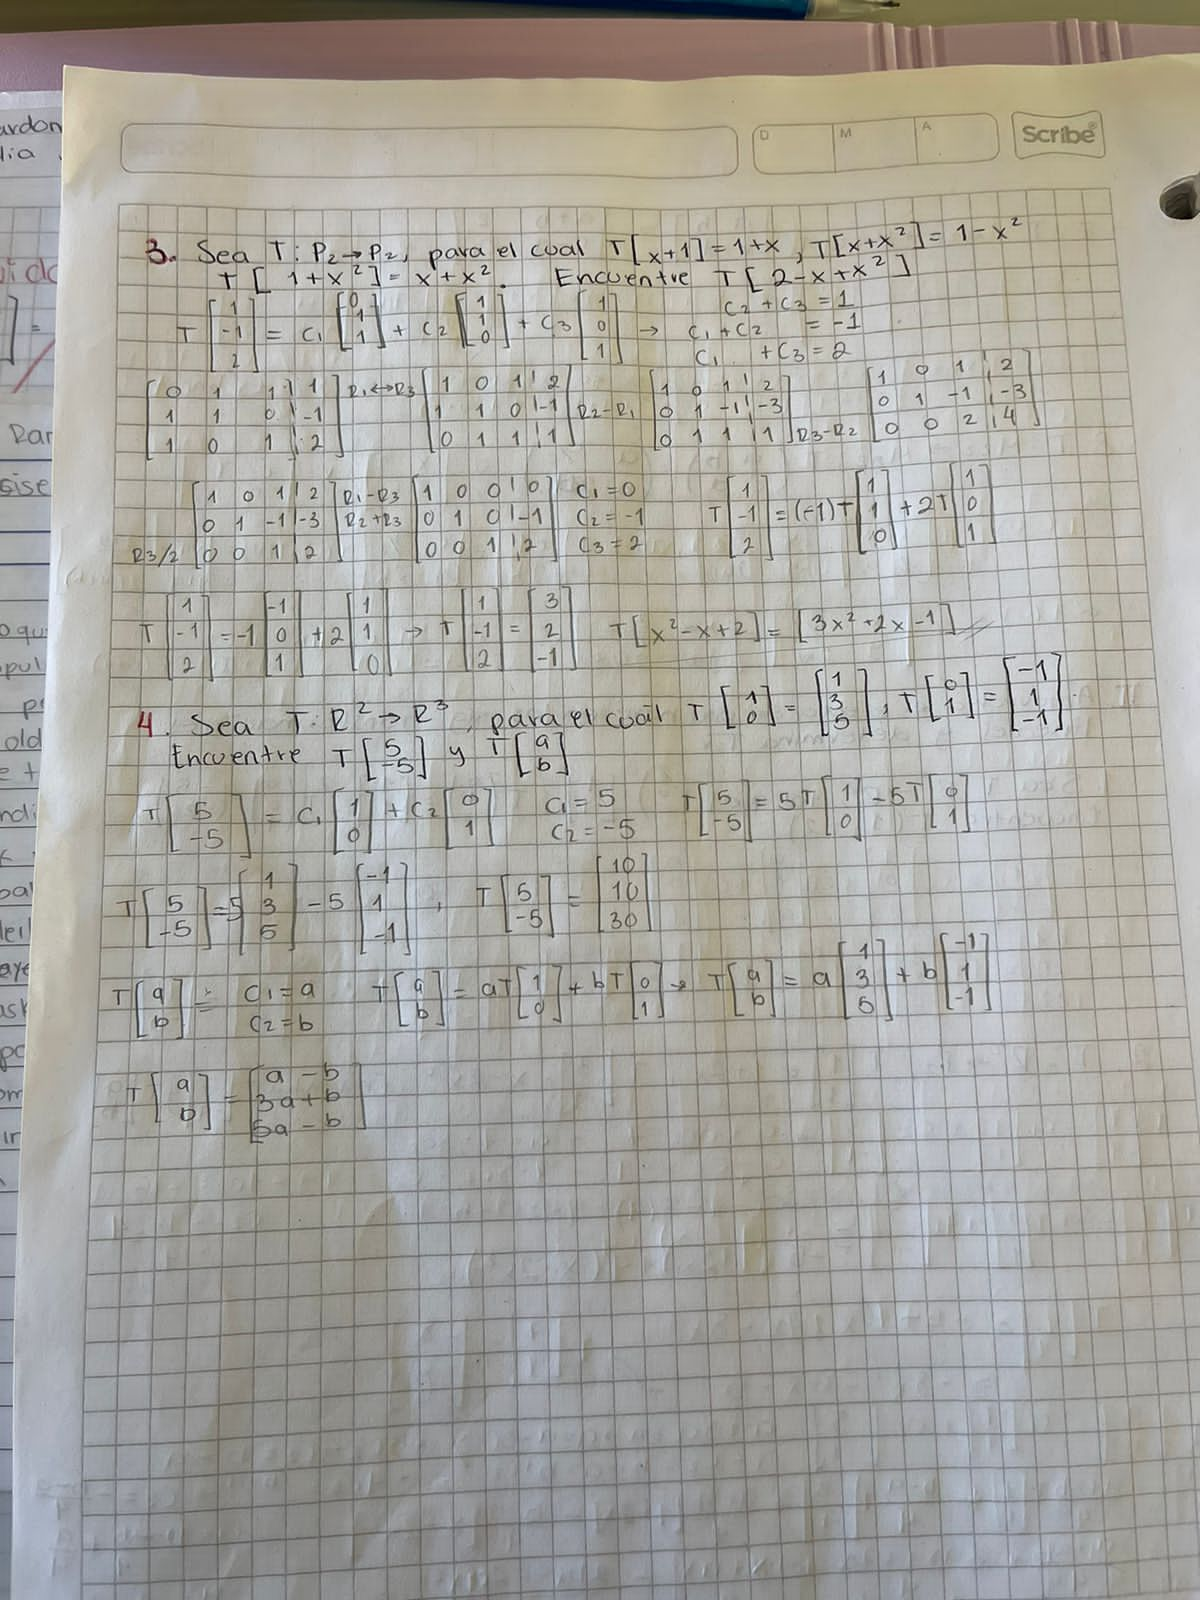 ardon
lia
D M A Scribe®
3. Sea T: P₂→P₂, para el cual T[x+1]=1+x, T[x+x²]=1-x²
T[1+x²]=x+x². Encuentre T[2-x+x²]
T[1 -1 2] = C₁[0 1 1] + C₂[1 1 0] + C₃[1 0 1] → C₂+C₃=1
C₁+C₂ =-1
C₁ +C₃=2
[0 1 1|1 R₁↔R₃ [1 0 1|2 [1 0 1|2 [1 0 1|2
1 1 0|-1 1 1 0|-1 R2-R₁ 0 1 -1|-3 0 1 -1|-3
1 0 1|2] 0 1 1|1] 0 1 1|1] R3-R2 0 0 2|4]
[1 0 1|2 R₁-R3 [1 0 0|0 C₁=0
0 1 -1|-3 R2+R3 0 1 0|-1 C₂=-1 T[1 -1 2]=(-1)T[1 1 0]+2T[1 0 1]
R3/2 0 0 1|2] 0 0 1|2] C₃=2
T[1 -1 2]=-1[-1 0 1]+2[1 1 0] → T[1 -1 2]=[3 2 -1] T[x²-x+2]=[3x²+2x-1]
4. Sea T: R²→R³, para el cual T[1 0]=[1 3 5], T[0 1]=[-1 1 -1].
Encuentre T[5 -5] y T[a b]
T[5 -5] = C₁[1 0]+C₂[0 1] C₁=5 C₂=-5 T[5 -5]=5T[1 0]-5T[0 1]
T[5 -5]=5[1 3 5]-5[-1 1 -1], T[5 -5]=[10 10 30]
T[a b]= C₁=a C₂=b T[a b]=aT[1 0]+bT[0 1]→ T[a b]=a[1 3 5]+b[-1 1 -1]
T[a b]=[a-b 3a+b 5a-b]